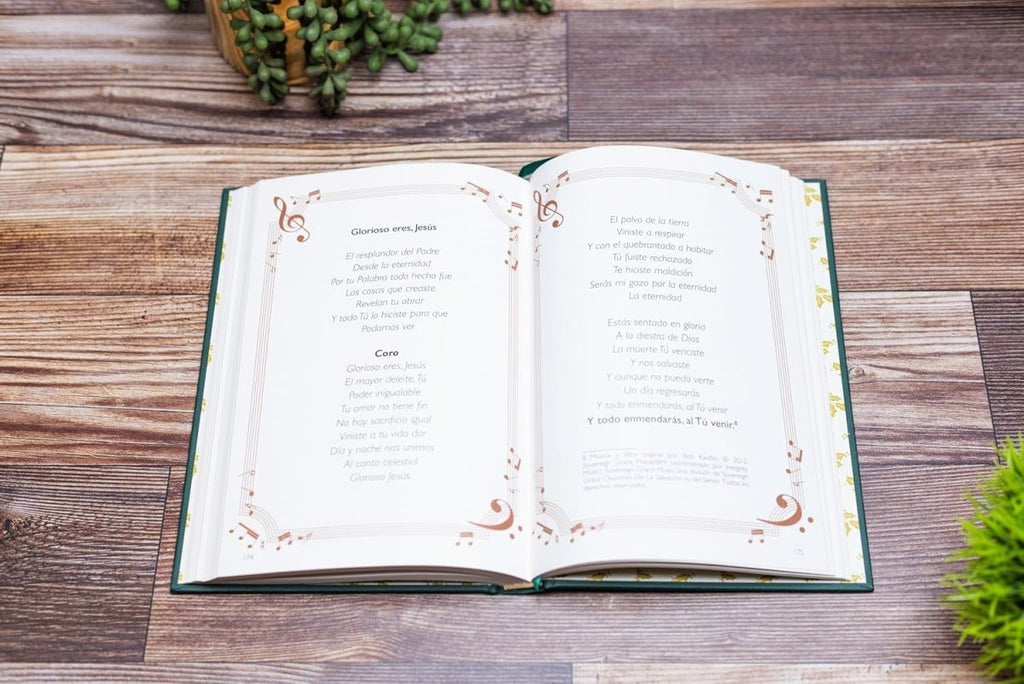 Glorioso eres, Jesús
El resplandor del Padre
Desde la eternidad
Por tu Palabra todo hecho fue
Las cosas que creaste
Revelan tu obrar
Y todo Tú lo hiciste para que
Podamos ver
Coro
Glorioso eres, Jesús
El mayor deleite, Tú
Poder inigualable
Tu amor no tiene fin
No hay sacrificio igual
Viniste a tu vida dar
Día y noche nos unimos
Al canto celestial
Glorioso Jesús
174
El polvo de la tierra
Viniste a respirar
Y con el quebrantado a habitar
Tú fuiste rechazado
Te hiciste maldición
Serás mi gozo por la eternidad
La eternidad
Estás sentado en gloria
A la diestra de Dios
La muerte Tú venciste
Y nos salvaste
Y aunque no puedo verte
Un día regresarás
Y todo enmendarás, al Tú venir
Y todo enmendarás, al Tú venir.⁸
8 Música y letra original por Bob Kauflin. © 2012
Sovereign Grace Praise/BMI (administrado por Integrity
Music). Sovereign Grace Music, una división de Sovereign
Grace Churches. De La Salvación es del Señor. Todos los
derechos reservados.
175